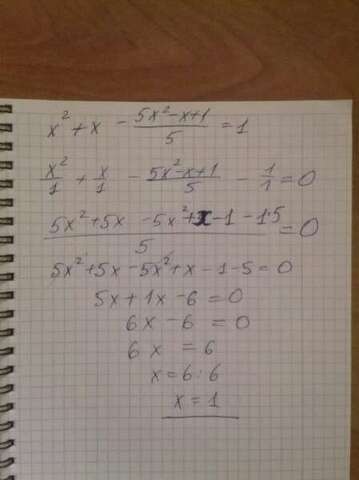 x² + x - (5x² - x + 1)/5 = 1
x²/1 + x/1 - (5x² - x + 1)/5 - 1/1 = 0
(5x² + 5x - 5x² + x - 1 - 1·5)/5 = 0
5x² + 5x - 5x² + x - 1 - 5 = 0
5x + 1x - 6 = 0
6x - 6 = 0
6x = 6
x = 6 : 6
x = 1